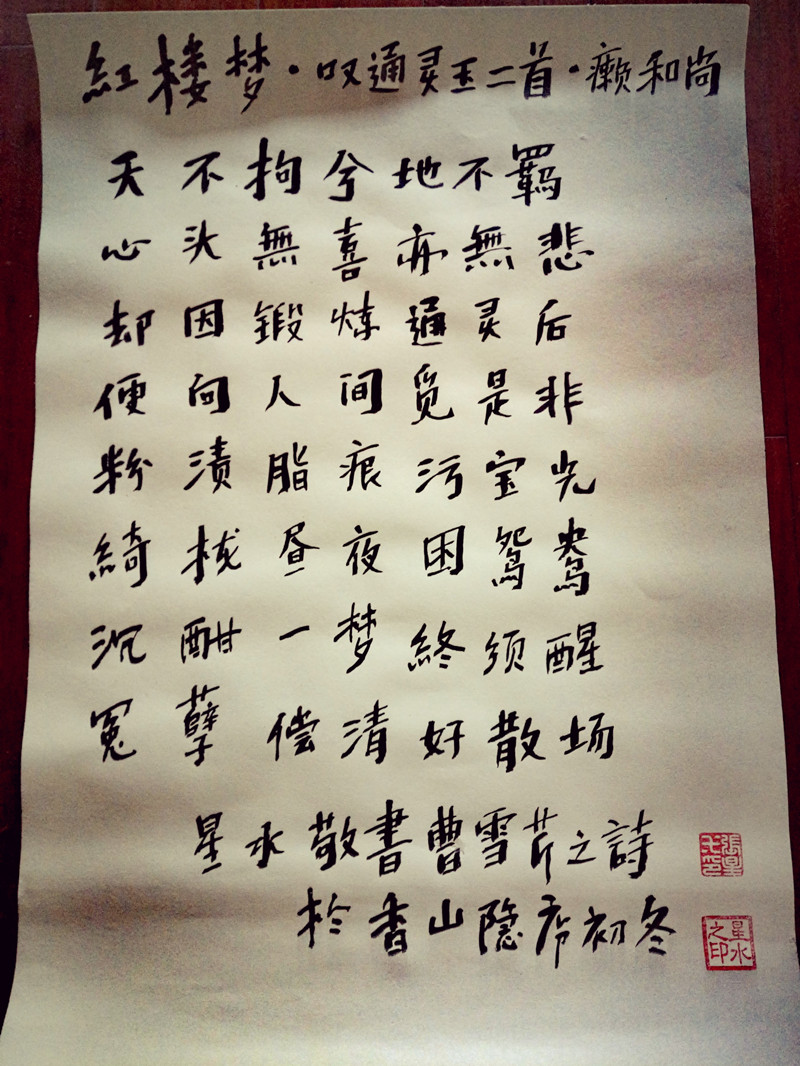 紅楼梦·叹通灵玉二首·癞和尚
天不拘兮地不羈
心头無喜亦無悲
却因鍛炼通灵后
便向人间觅是非
粉渍脂痕污宝光
綺栊昼夜困鸳鴦
沉酣一梦終须醒
冤孽偿清好散场
星水敬書曹雪芹之詩
於香山隐居初冬
星水之印